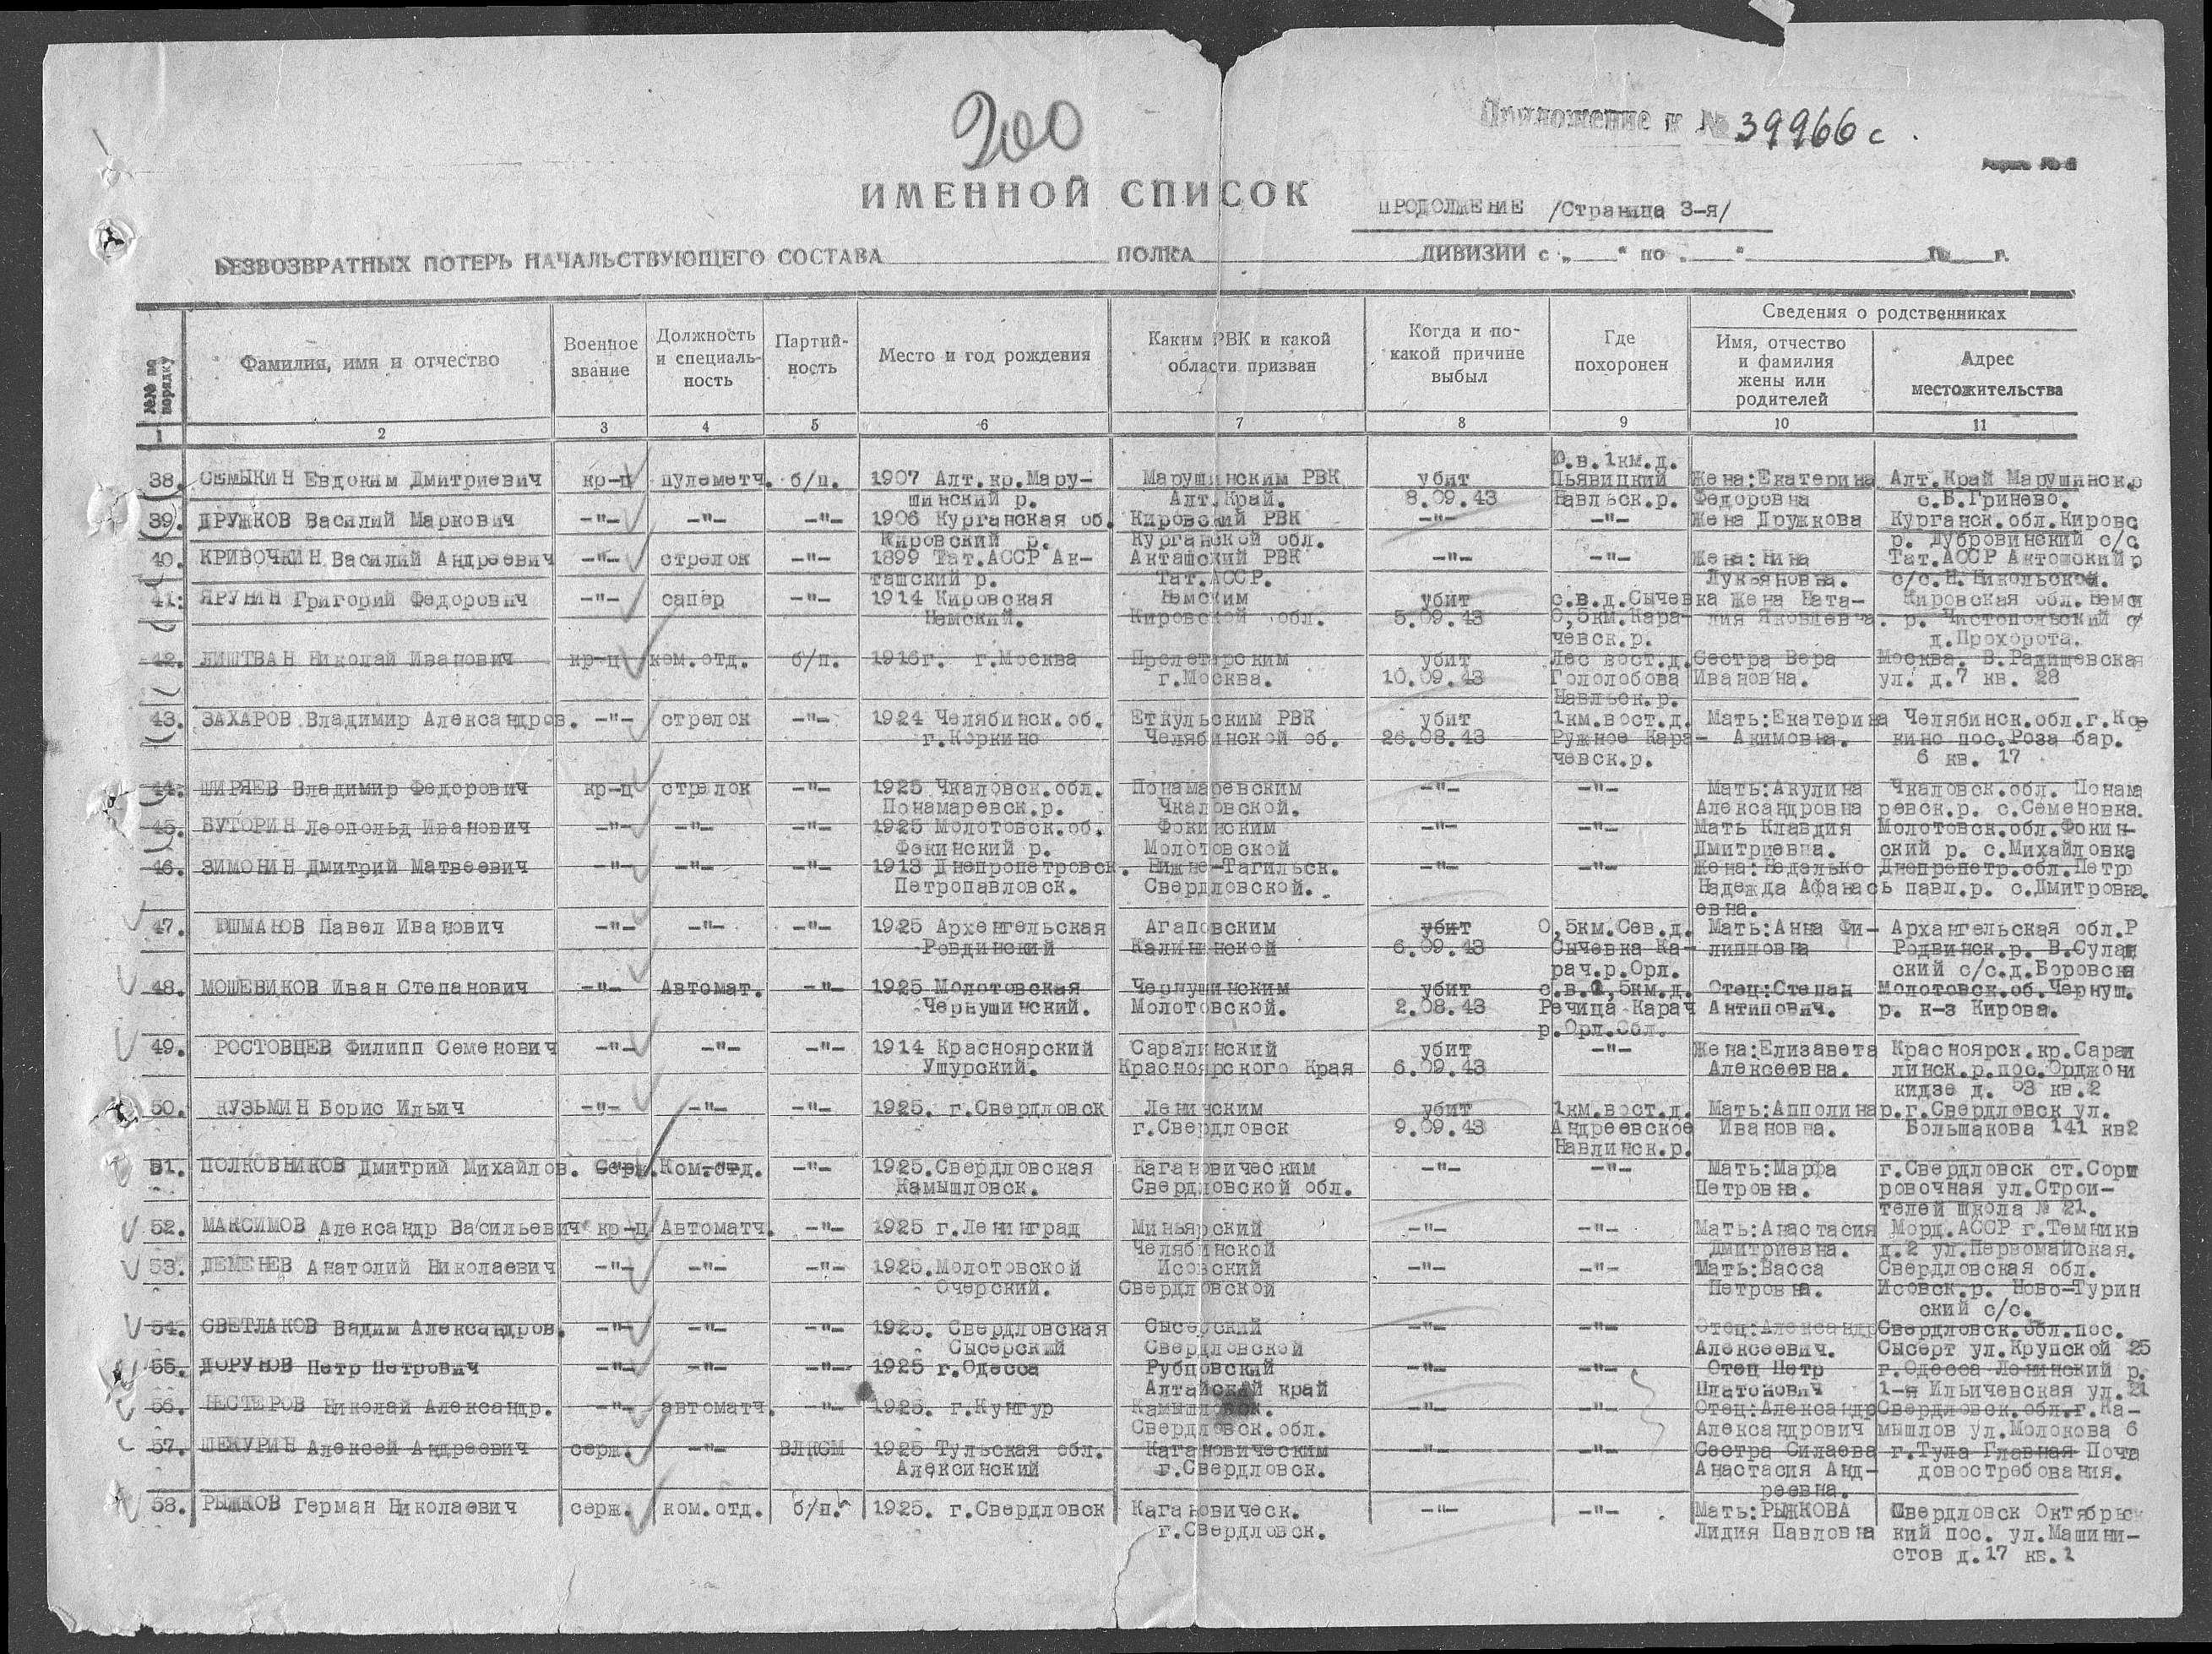 200
Приложение к № 39966 с.
Форма № 2
ИМЕННОЙ СПИСОК
ПРОДОЛЖЕНИЕ /Страница 3-я/
БЕЗВОЗВРАТНЫХ ПОТЕРЬ НАЧАЛЬСТВУЮЩЕГО СОСТАВА ПОЛКА ДИВИЗИИ с „ “ по „ “ г.
№№ по порядку
Фамилия, имя и отчество
Военное звание
Должность и специаль-ность
Партий-ность
Место и год рождения
Каким РВК и какой области призван
Когда и по-какой причине выбыл
Где похоронен
Сведения о родственниках
Имя, отчество и фамилия жены или родителей
Адрес местожительства
1 2 3 4 5 6 7 8 9 10 11
Ю.в.1км.д.
38. СЕМЫКИН Евдоким Дмитриевич кр-ц пулеметч. б/п. 1907 Алт.кр.Мару- Марушинским РВК убит Пьявицкий Жена:Екатерина Алт.Край Марушинск.р
шинский р. Алт.Край. 8.09.43 Навльск.р. Федоровна с.Б.Гринево.
39. ДРУЖКОВ Василий Маркович -"- -"- -"- 1906 Курганская об. Кировский РВК -"- -"- Жена Дружкова Курганск.обл.Кировс
Кировский р. Курганской обл. р. Дубровинский с/с
40. КРИВОЧКИН Василий Андреевич -"- стрелок -"- 1899 Тат.АССР Ак- Акташский РВК -"- -"- Жена:Нина Тат.АССР Актошский р
ташский р. Тат.АССР. Лукьяновна. с/с.Н.Никольской.
41. ЯРУНИН Григорий Федорович -"- сапер -"- 1914 Кировская Немским убит с.в.д.Сычевка Жена Ната- Кировская обл.Немск
Немский. Кировской обл. 5.09.43 0,5км.Кара- лия Яковлевна. р. Чистопольский с/
чевск.р. д.Прохорота.
42. ЛИШТВАН Николай Иванович кр-ц ком.отд. б/п. 1916г. г.Москва Пролетарским убит Лес вост.д. Сестра Вера Москва. В.Радищевская
г.Москва. 10.09.43 Гололобова Ивановна. ул. д.7 кв. 28
Навльск.р.
43. ЗАХАРОВ Владимир Александров. -"- стрелок -"- 1924 Челябинск.об. Еткульским РВК убит 1км.вост.д. Мать:Екатерина Челябинск.обл.г.Кор
г.Коркино Челябинской об. 26.08.43 Ружное Кара- Акимовна. кино пос.Роза бар.
чевск.р. 6 кв. 17
44. ШИРЯЕВ Владимир Федорович кр-ц стрелок -"- 1925 Чкаловск.обл. Понамаревским -"- -"- Мать:Акулина Чкаловск.обл. Понама
Понамаревск.р. Чкаловской. Александровна ревск.р. с.Семеновка.
45. БУТОРИН Леопольд Иванович -"- -"- -"- 1925 Молотовск.об. Фокинским -"- -"- Мать Клавдия Молотовск.обл.Фокин-
Фокинский р. Молотовской Дмитриевна. ский р. с.Михайловка
46. ЗИМОНИН Дмитрий Матвеевич -"- -"- -"- 1913 Днепропетровск. Нижне-Тагильск. -"- -"- Жена:Неделько Днепропетр.обл.Петр
Петропавловск. Свердловской. Надежда Афанась павл.р. с.Дмитровка.
евна.
47. ЮШМАНОВ Павел Иванович -"- -"- -"- 1925 Архангельская Агаповским убит 0,5км.Сев.д. Мать:Анна Фи- Архангельская обл.Р
Ровдинский Калининской 6.09.43 Сычевка Ка- липповна Родвинск.р. В.Сулан
рач.р.Орл. ский с/с.д.Боровска
48. МОШЕВИКОВ Иван Степанович -"- Автомат. -"- 1925 Молотовская Чернушинским убит с.в.1,5км.д. Отец:Степан Молотовск.об.Чернуш.
Чернушинский. Молотовской. 2.08.43 Речица Карач Антипович. р. к-з Кирова.
р.Орл.Обл.
49. РОСТОВЦЕВ Филипп Семенович -"- -"- -"- 1914 Красноярский Саралинский убит -"- Жена:Елизавета Красноярск.кр.Сарал
Ушурский. Красноярского Края 6.09.43 Алексеевна. линск.р.пос.Орджони
кидзе д. 53 кв.2
50. КУЗЬМИН Борис Ильич -"- -"- -"- 1925. г.Свердловск Ленинским убит 1км.вост.д. Мать:Апполинар. г.Свердловск ул.
г.Свердловск 9.09.43 Андреевское Ивановна. Большакова 141 кв2
Навлинск.р.
51. ПОЛКОВНИКОВ Дмитрий Михайлов. Серж. Ком.отд. -"- 1925.Свердловская Кагановическим -"- -"- Мать:Марфа г.Свердловск ст.Сорт
Камышловск. Свердловской обл. Петровна. ровочная ул.Строи-
телей школа № 21.
52. МАКСИМОВ Александр Васильевич кр-ц Автоматч. -"- 1925 г.Ленинград Миньярский -"- -"- Мать:Анастасия Морд.АССР г.Темникв
Челябинской Дмитриевна. д.2 ул.Первомайская.
53. ДЕМЕНЕВ Анатолий Николаевич -"- -"- -"- 1925.Молотовской Исовский -"- -"- Мать:Васса Свердловская обл.
Очерский. Свердловской Петровна. Исовск.р. Ново-Турин
ский с/с.
54. СВЕТЛАКОВ Вадим Александров. -"- -"- -"- 1925. Свердловская Сысерский -"- -"- Отец:Александр Свердловск.обл.пос.
Сысерский Свердловской Алексеевич. Сысерт ул.Крупской 25
55. ДОРУНОВ Петр Петрович -"- -"- -"- 1925 г.Одесса Рубцовский -"- -"- Отец Петр г.Одесса Ленинский р.
Алтайский край Платонович 1-я Ильичевская ул.21
56. НЕСТЕРОВ Николай Александр. -"- автоматч. -"- 1925. г.Кунгур Камышловск. -"- -"- Отец:Александр Свердловск.обл.г.Ка-
Свердловск.обл. Александрович мышлов ул.Молокова 6
57. ШЕКУРИН Алексей Андреевич серж. -"- ВЛКСМ 1925 Тульская обл. Кагановическим -"- -"- Сестра Силаева г.Тула Главная Почта
Алексинский г.Свердловск. Анастасия Анд- довостребования.
реевна.
58. РЫЖКОВ Герман Николаевич серж. ком.отд. б/п. 1925. г.Свердловск Кагановическ. -"- -"- Мать:РЫЖКОВА Свердловск Октябрьс
г.Свердловск. Лидия Павловна кий пос. ул.Машини-
стов д.17 кв.1